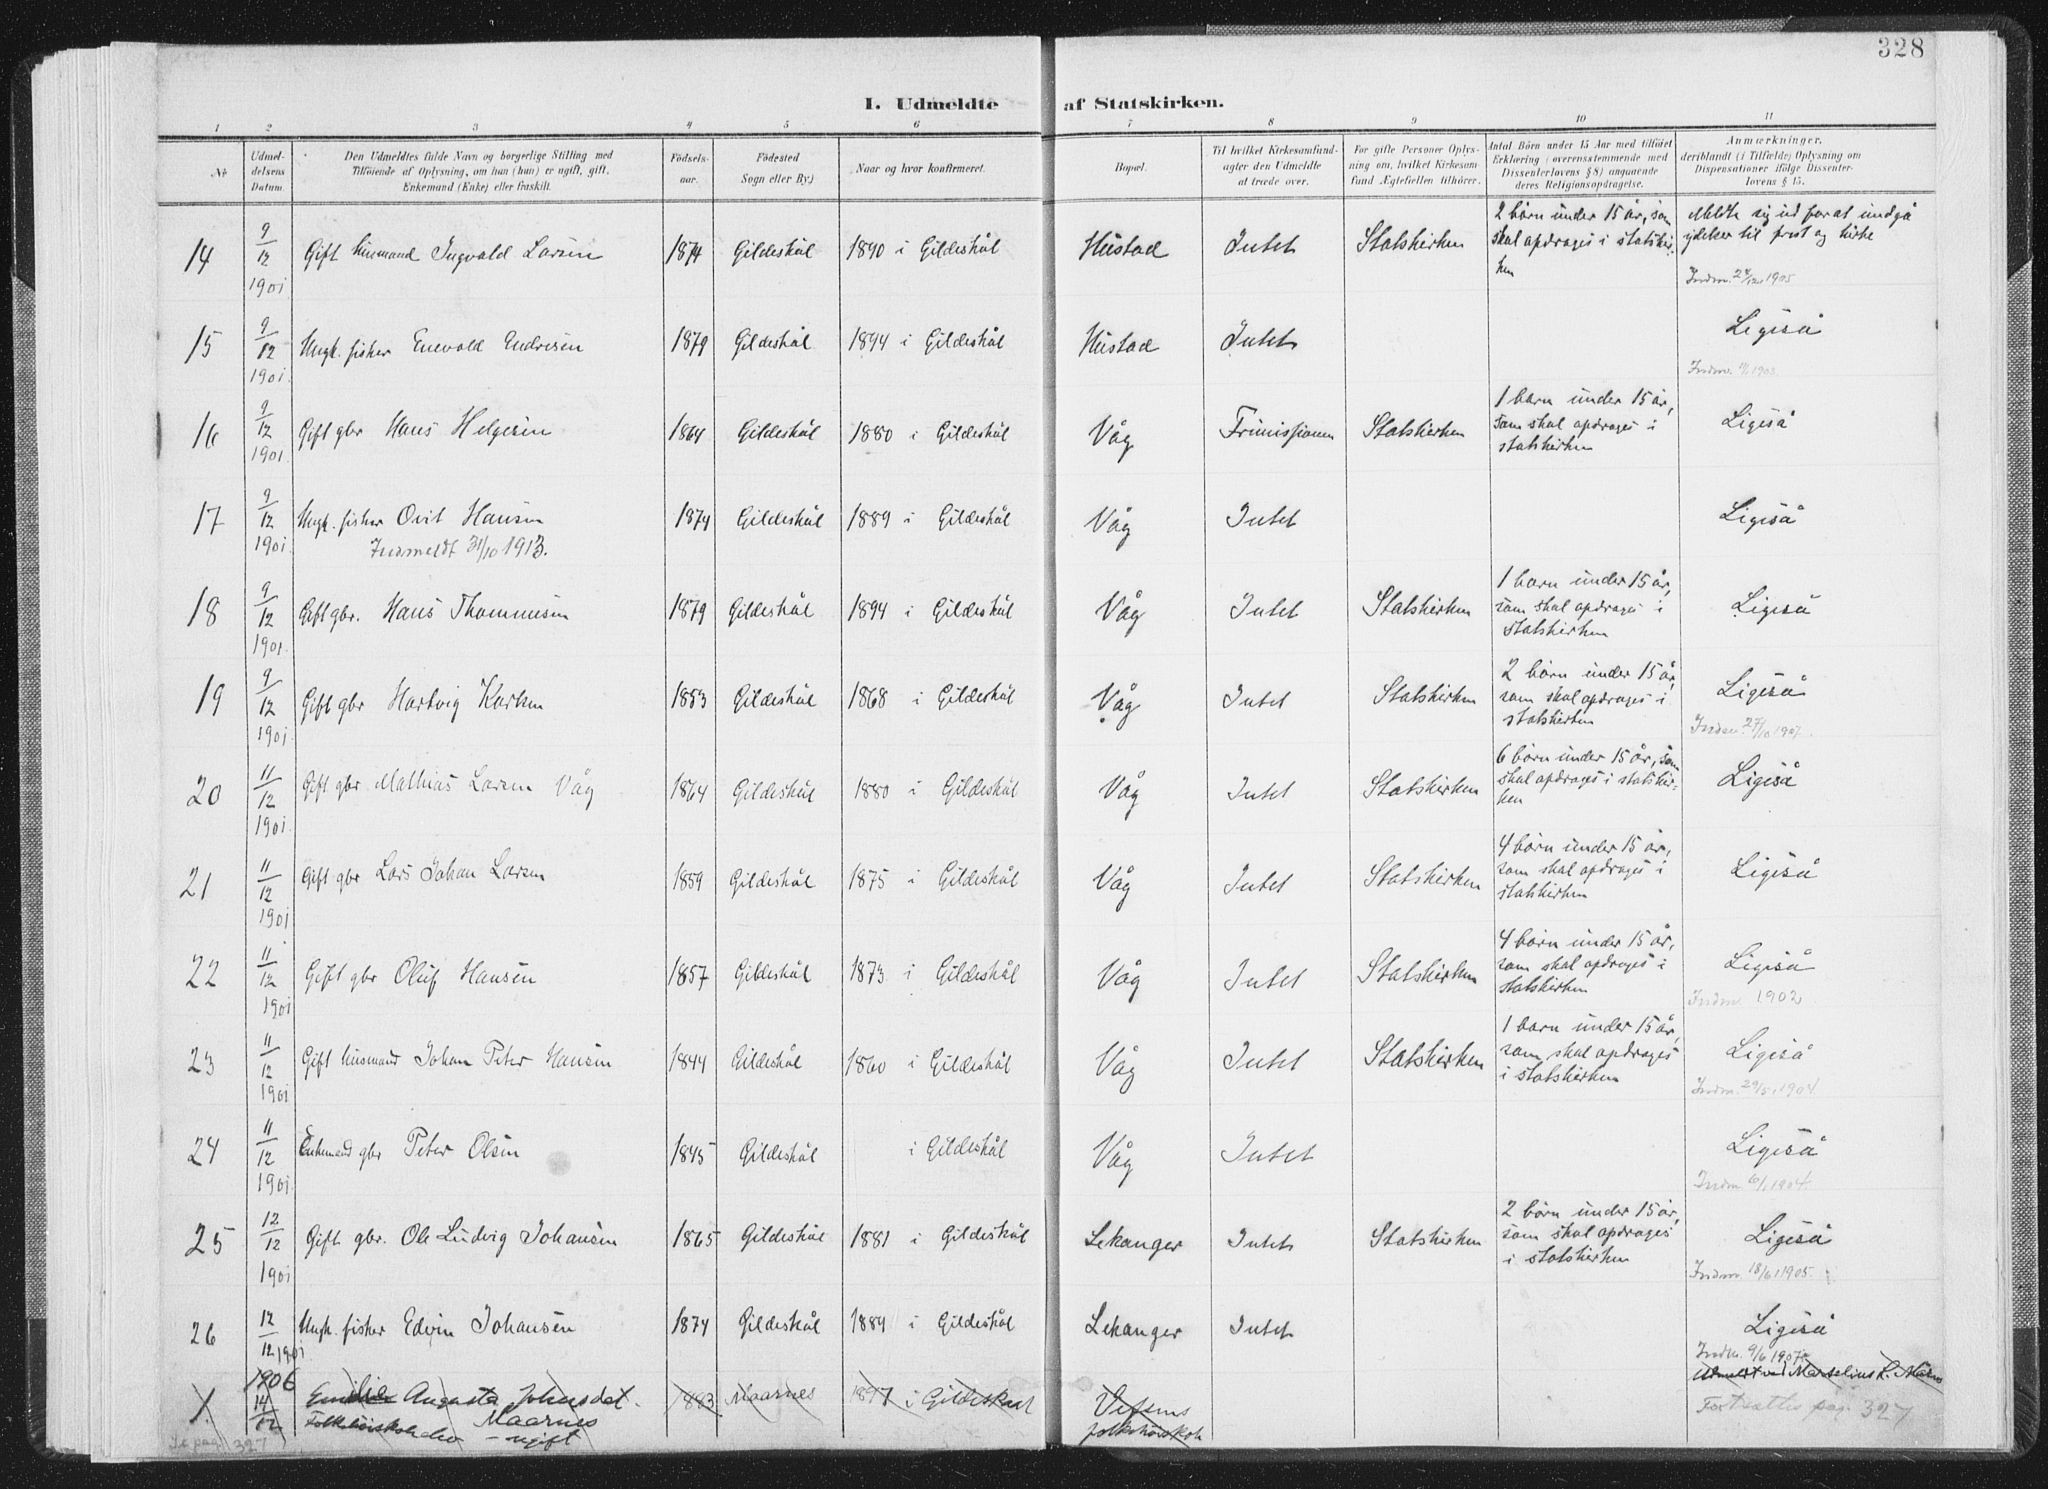 328
I. Udmeldte af Statskirken.
1 2 3 4 5 6 7 8 9 10 11
Nr
Udmel-
delsens
Datum.
Den Udmeldtes fulde Navn og borgerlige Stilling med
Tilføiende af Oplysning, om han (hun) er ugift, gift,
Enkemand (Enke) eller fraskilt.
Fødsels-
aar.
Fødested
Sogn eller By)
Naar og hvor konfirmeret.
Bopæl.
Til hvilket Kirkesamfund
agter den Udmeldte
at træde over.
For gifte Personer Oplys-
ning om, hvilket Kirkesam-
fund Ægtefællen tilhører.
Antal Børn under 15 Aar med tilføiet
Erklæring (overensstemmende med
Dissenterlovens § 8) angaaende
deres Religionsopdragelse.
Anmærkninger,
deriblandt (i Tilfælde) Oplysning om
Dispensationer ifølge Dissenter-
lovens § 15.
14 9/12 1901 Gift husmand Ingvald Larsen 1874 Gildeskål 1890 i Gildeskål Hustad Intet Statskirken
2 børn under 15 år, som
skal opdrages i statskir-
ken
Meldte sig ud for at undgå
ydelser til prest og kirke
Indm. 24/12 1905
15 9/12 1901. Ungk. fisker Enevold Endresen 1879 Gildeskål 1894 i Gildeskål Hustad Intet Ligeså
Indm. 1903.
16 9/12 1901. Gift gbr Hans Helgesen 1864 Gildeskål 1880 i Gildeskål Våg Frimissionen Statskirken
1 barn under 15 år,
som skal opdrages i
statskirken
Ligeså
17 9/12 1901 Ungk. fisker Ovit Hansen 1874 Gildeskål 1889 i Gildeskål Våg Intet Ligeså
Indmeldt 31/10 1913.
18 9/12 1901. Gift gbr. Hans Thommesen 1879 Gildeskål 1894 i Gildeskål Våg Intet Statskirken
1 barn under 15 år,
som skal opdrages i
statskirken
Ligeså
19 9/12 1901 Gift gbr Hartvig Karlsen 1853 Gildeskål 1868 i Gildeskål Våg Intet Statskirken
2 børn under 15 år,
som skal opdrages i
statskirken
Ligeså
Indm. 27/10 1907.
20 11/12 1901. Gift gbr Mathias Larsen Våg 1864 Gildeskål 1880 i Gildeskål Våg Intet Statskirken
6 børn under 15 år, som
skal opdrages i statskir-
ken
Ligeså
21 11/12 1901 Gift gbr Lars Johan Larsen 1859 Gildeskål 1875 i Gildeskål Våg Intet Statskirken
4 børn under 15 år,
som skal opdrages i
statskirken
Ligeså
22 11/12 1901 Gift gbr Oluf Hansen 1857 Gildeskål 1873 i Gildeskål Våg Intet Statskirken
4 børn under 15 år,
som skal opdrages i
statskirken
Ligeså
Indm. 1902
23 11/12 1901 Gift husmand Johan Peter Hansen 1844 Gildeskål 1860 i Gildeskål Våg Intet Statskirken
1 barn under 15 år,
som skal opdrages
i statskirken
Ligeså
Indm. 29/5 1904.
24 11/12 1901. Enkemand gbr Peter Olsen 1845 Gildeskål i Gildeskål Våg Intet Ligeså
Indm 6/1 1904.
25 12/12 1901 Gift gbr. Ole Ludvig Johansen 1865 Gildeskål 1881 i Gildeskål Lekanger Intet Statskirken
2 børn under 15 år,
som skal opdrages
i statskirken
Ligeså
Indm. 18/6 1905.
26 12/12 1901 Ungk. fisker Edvin Johansen 1874 Gildeskål 1889 i Gildeskål Lekanger Intet Ligeså
Indm. 9/6 1907
1. 1906 14/12 Emilie Augusta Johnsdat. 1883 Maarnes 1897 i Gildeskaal Vefsens
Maarnes
ugift
folkehøiskole
Udmeldt ved Marselius L. Måsø
Fortsættes pag. 327
Se pag. 327